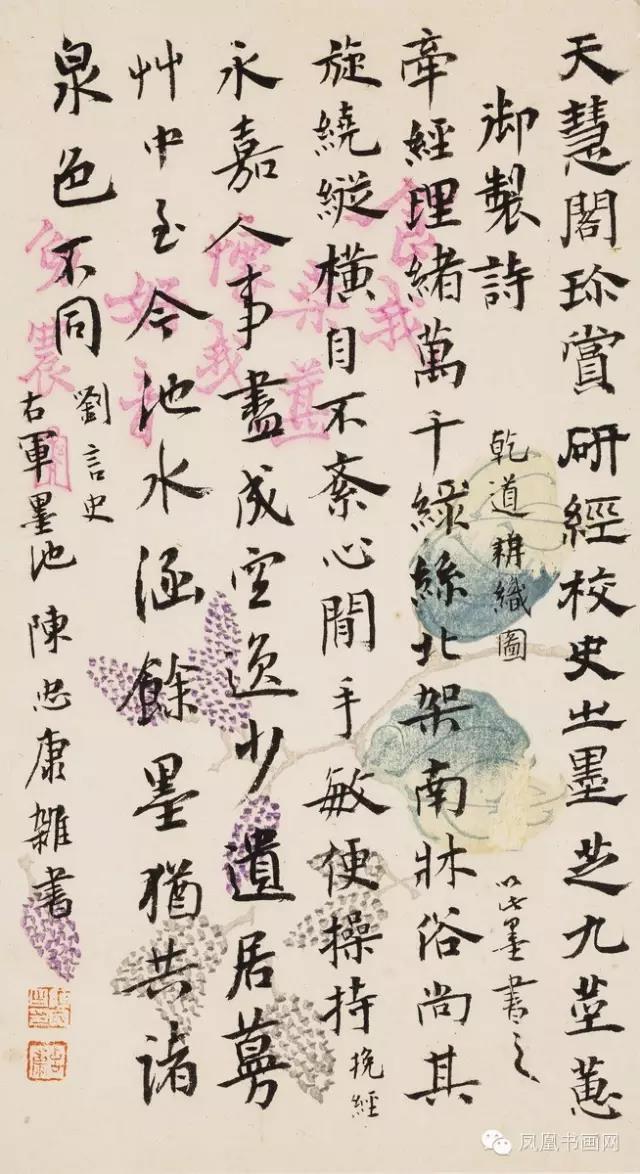 天慧閣珍賞研經校史之墨芝九莖蕙
御製詩
乾道耕織圖
以此墨書之
牽經理緒萬千綠絲北架南牀俗尚其
旋繞縱橫目不紊心閒手敏便操持
挽經
永嘉人事盡成空逸少遺居蔓
艸中至今池水涵餘墨猶共諸
泉色不同
劉言史
右軍墨池 陳忠康雜書
食我
桑葚
懷我
好音
凤凰书画网